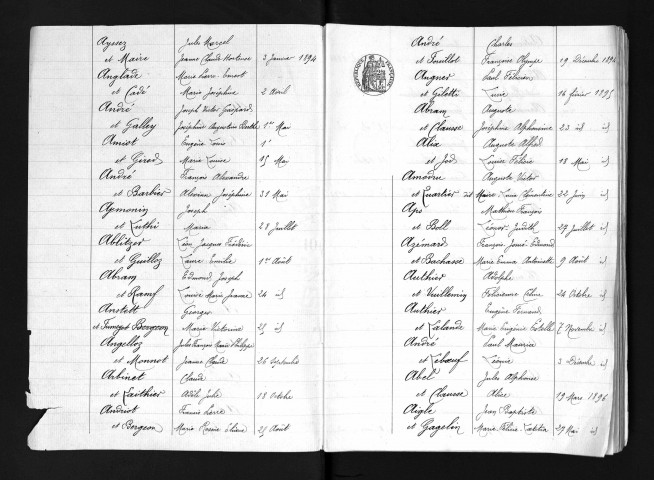 Ayssez Jules Marcel
et Maire Jeanne Claude Hortense 3 Janvier 1894
Anglade Marie
et Cadé Marie Joséphine 2 Avril
André Joseph Victor Gaspard
et Galley Joséphine Augustine Berthe 1er Mai
Amiot Eugène Louis 1'
et Girod Marie Louise 15 Mai
André François Alexandre
et Barbier Alexine Joséphine 31 Mai
Aymonin Joseph
et Luthi Maria 28 Juillet
Ablitzer Léon Jacques Frédéric
et Guilloz Laure Emilie 1er Août
Abram Edmond Joseph
et Ramf Louise Marie Jeanne 24 id
Anstett Georges
et Bergeon Marie Victorine 25 id
Angelloz Jules François Marie Philippe
et Monnot Jeanne Claude 26 Septembre
Arbinet Claude
et Laithier Adèle Julie 18 Octobre
Andriot Francis
et Bergeon Marie 25 Août
André Charles
et Françoise Olympe 19 Décembre 1894
Augner Paul
et Gilotti Lucie 16 février 1895
Abram Auguste
et Clausse Joséphine Alphonsine 23 id
Alix Auguste Alfred
et Jod Louise 18 Mai id
Amodru Auguste Victor
et Quartier dit Maire Louise Clémentine 22 Juin id
Apo Mathieu François
et Boll Léonor Judith 27 Juillet id
Azémard François Edmond
et Bachasse Marie Emma Antoinette 9 Août id
Authier Adolphe
et Vuillemin Félicienne Céline 24 Octobre id
Authier Eugène Fernand
et Lalande Marie Eugénie 7 Novembre id
André Paul Maurice
et Leboeuf Léonie 3 Décembre id
Abel Jules Alphonse
et Clausse Alice 19 Mars 1896
Aigle Jean Baptiste
et Gagelin Marie 27 Mai id